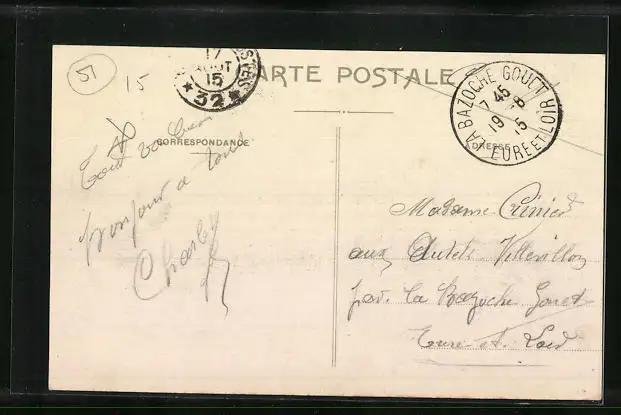 51
15
17
AOUT
15
★ 32 ★
CARTE POSTALE
LA BAZOCHE GOUET
7 45
19 -8
15
EURE ET LOIR
CORRESPONDANCE
ADRESSE
Tout va bien
bonjour a tous
Charly
Madame
aux Villevillon
par la Bazoche Gouet
Eure et Loir